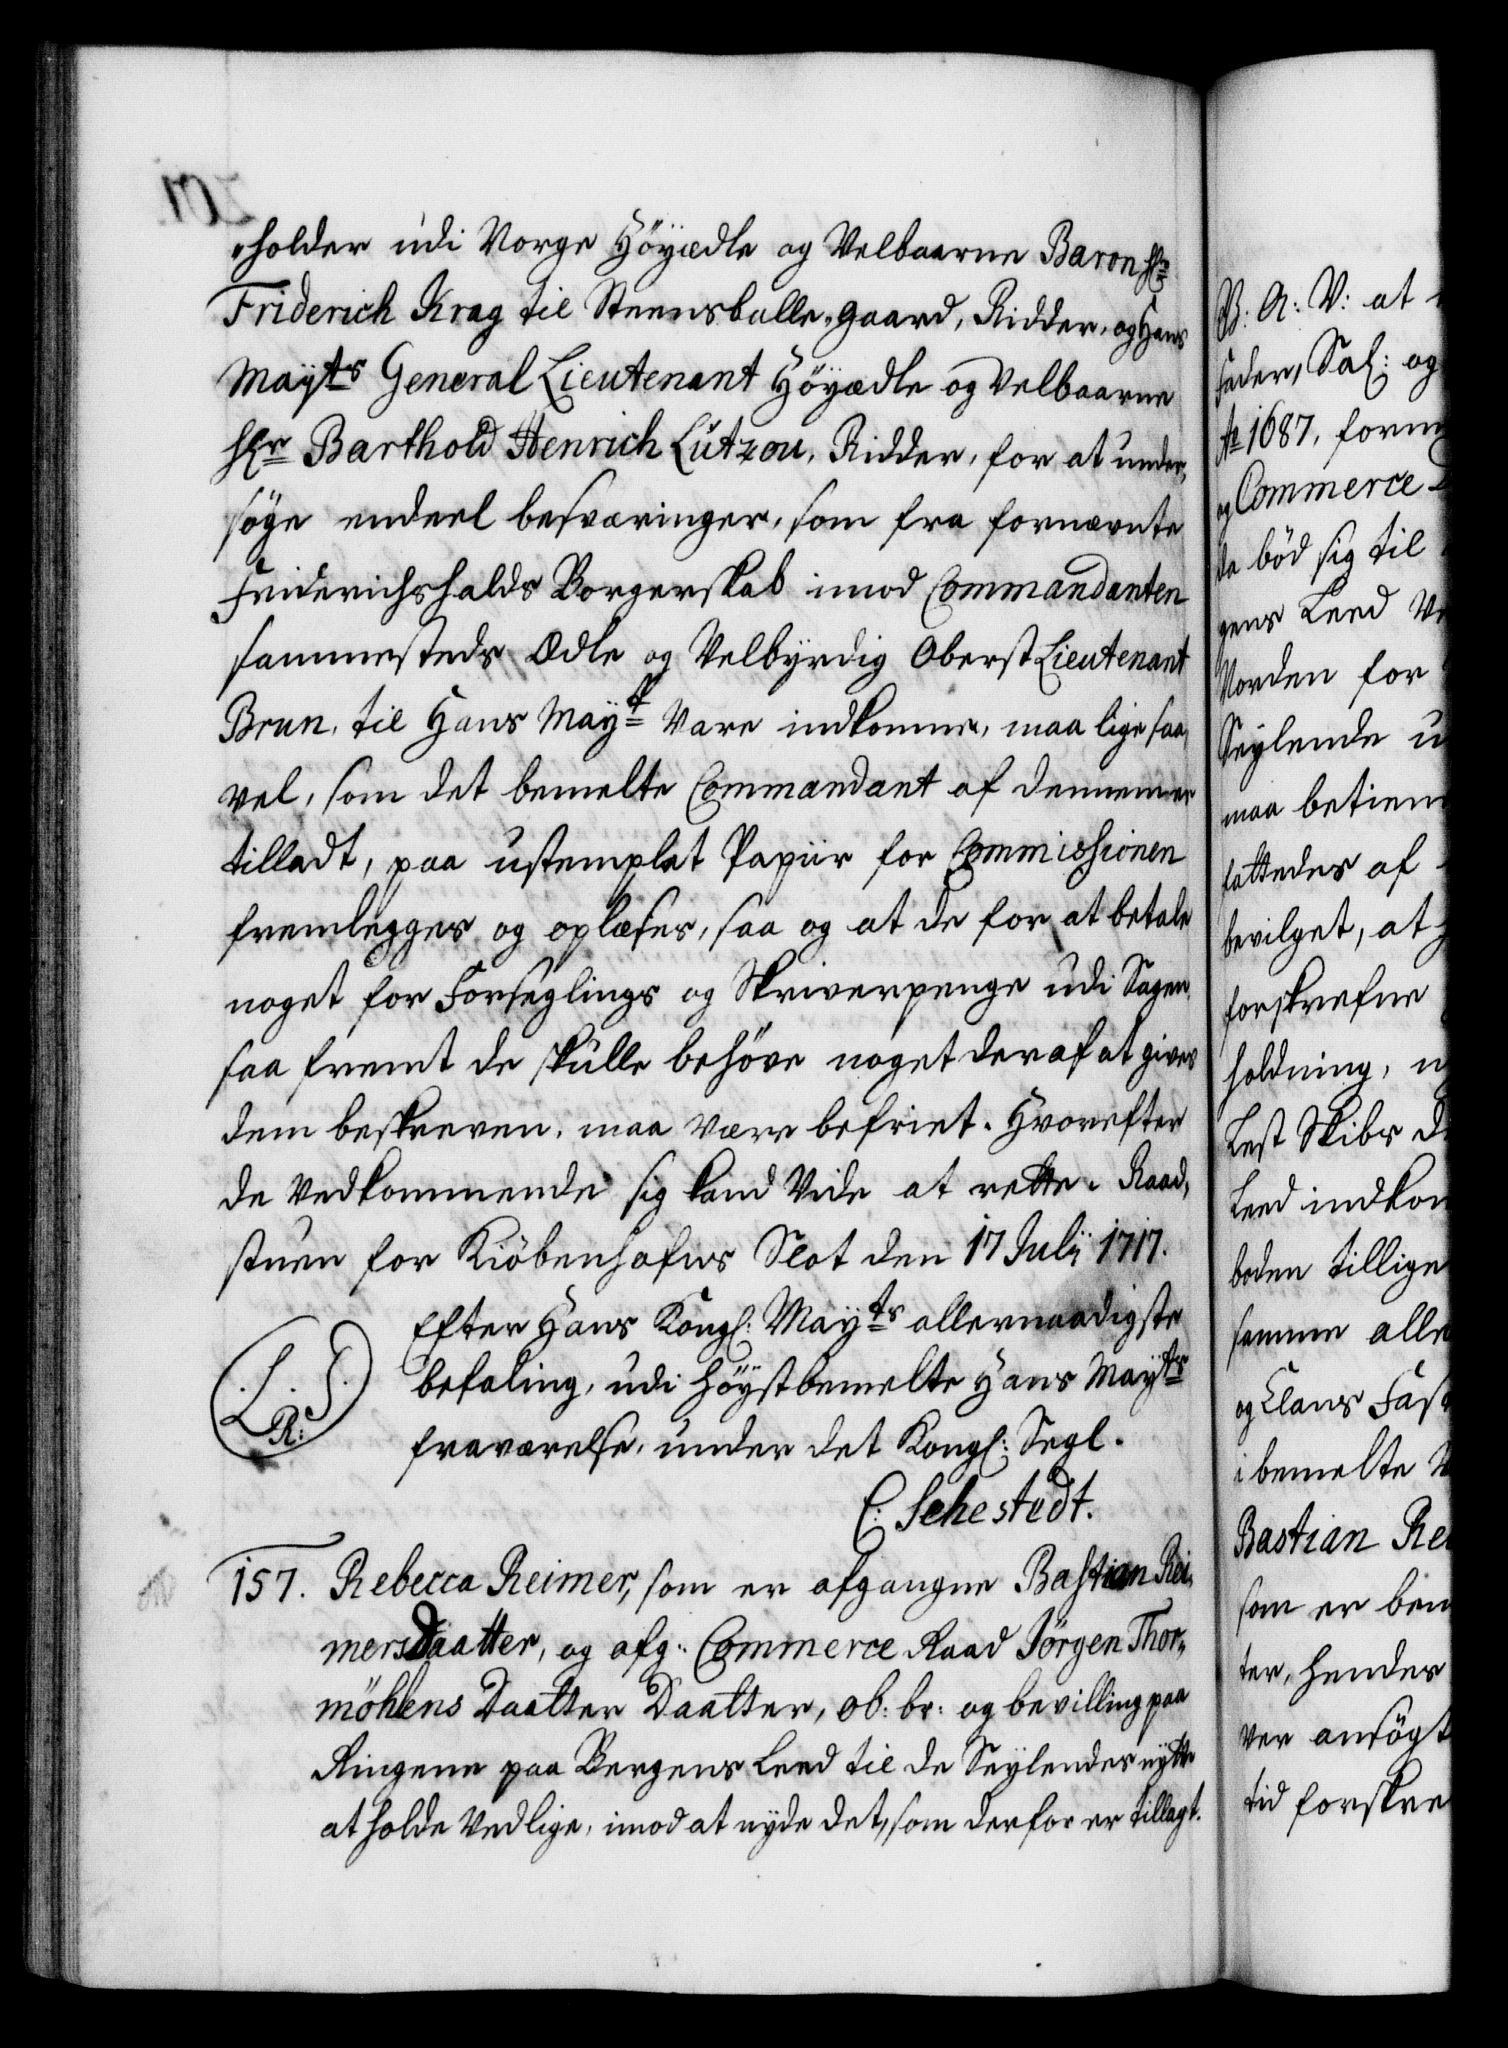 holder udi Norge Höyædle og Velbaarne Baron Hr
Friderich Krag til Steensballe-gaard, Ridder, og Hans
Mayts General Lieutenant Höyædle og Velbaarne
Hr Barthold Henrich Lützou, Ridder, for at under-
söge endeel besværinger, som fra fornævnte
Friderichshalds Borgerskab imod Commandanten
sammesteds Ædle og Velbyrdig Oberst Lieutenant
Brun, til Hans Mayt vare indkomne, maa lige saa
vel, som det bemelte Commandant af dennem er
tilladt, paa ustemplet Papiir for Commissionen
fremlegges og oplæses, saa og at de for at betale
noget for Forseglings og Skriverpenge udi Sagen,
saa fremt de skulle behöve noget deraf at gives
dem beskreven, maa være befriet. Hvorefter
de Vedkommende sig kand Vide at rette. Raad-
stuen for Kiöbenhafns Slot den 17 Julij 1717.
Efter Hans Kongl: Mayts allernaadigste
befaling, udi höystbemelte Hans Mayts
fraværelse, under det Kongl: Segl.
L. S.
R:
C: Sehestedt.
157. Rebecca Reimer, som er afgangne Bastian Rei-
mersdaatter, og afg: Commerce Raad Jörgen Thor-
möhlens Daatter Daatter, ob: br: og bevilling paa
Ringene paa Bergens Leed til de Seylendes nytte
at holde Vedlige, imod at nyde det, som derfor er tillagt.
B: A: V: at
fader, Sal: og
Ao 1687, form
og Commerce
da böd sig til
gens Leed
Norden for
Seylende u
maa betien
fattedes af
bevilget, at
forskrefne
holdning,
Lest Skibs
Leed indkom
boden tillige
samme alle
og Claus Fas
i bemelte
Bastian Rei
som er bem
ter, hendes
ver ansögt
tid forskre